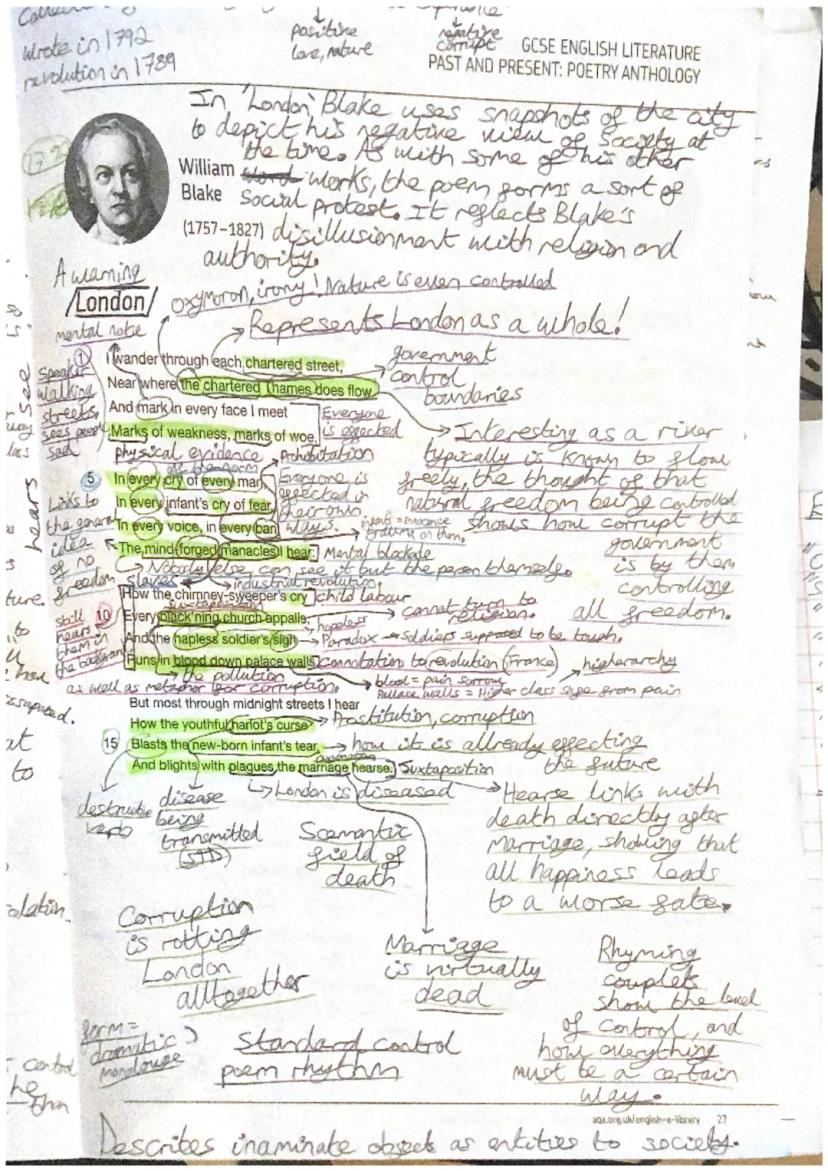 wrote in 1792
revolution in 1789
positive
love, nature
negative
corrupt
GCSE ENGLISH LITERATURE
PAST AND PRESENT: POETRY ANTHOLOGY
In 'London' Blake uses snapshots of the city
to depict his negative view of society at
the time. As with some of his other
works, the poem forms a sort of
social protest. It reflects Blake's
disillusionment with religion and
authority.
William
Blake
(1757–1827)
A warning
London
mental note
oxymoron, irony! Nature is even controlled
Represents London as a whole!
government
control
boundaries
1
Speaker
walking
streets,
sees people
sad
I wander through each chartered street,
Near where the chartered Thames does flow,
And mark in every face I meet
Marks of weakness, marks of woe.
Everyone
is effected
physical evidence
Interesting as a river
typically is known to flow
freely, the thought of that
natural freedom being controlled
shows how corrupt the
government
is by them
controlling
all freedom.
Prohibitation
5
In every cry of every man,
In every infant's cry of fear,
In every voice, in every ban,
The mind-forged manacles I hear:
Everyone is
effected in
their own
ways.
Mental blockade
Links to
the general
idea
of no
freedom
Nobody else can see it but the person themself.
slaves
industrial revolution.
How the chimney-sweeper's cry
child labour
juxtaposition
10
Every black'ning church appalls,
hopeless
cannot turn to
religion.
And the hapless soldier's sigh
Paradox → Soldiers supposed to be tough.
Runs in blood down palace walls.
connotation to revolution (France)
higherarchy
still
hears
them in
the background
the pollution
as well as metaphor for corruption.
blood = pain sorrow
Pallace walls = Higher class safe from pain
But most through midnight streets I hear
How the youthful harlot's curse
Prostitution, corruption
15
Blasts the new-born infant's tear,
how it is allready effecting
the future
And blights with plagues the marriage hearse.
Juxtaposition
London is diseased
destructive
verb
disease
being
transmitted
(STD)
Scemantic
field of
death
Hearse links with
death directly after
Marriage, showing that
all happiness leads
to a worse fate.
Corruption
is rotting
London
alltogether
Marriage
is virtually
dead
Rhyming
couplets
show the level
of control, and
how everything
must be a certain
way.
form =
dramatic
monolouge
Standard control
poem rhythm
aqa.org.uk/english-e-library 27
Describes inaminate objects as entities to society.